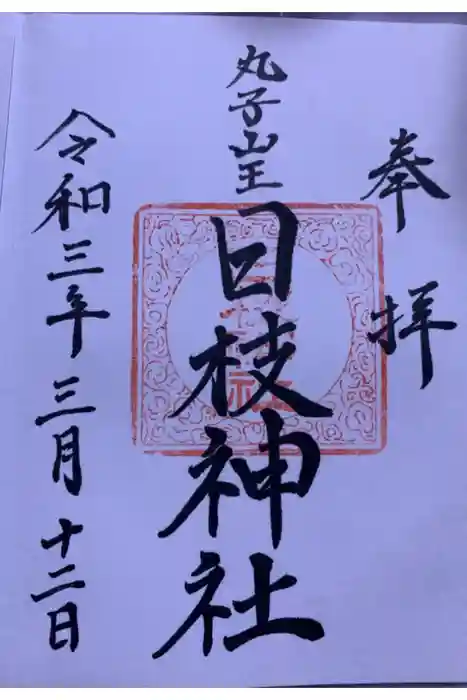 奉拝
丸子山王
日枝神社
令和三年三月十二日